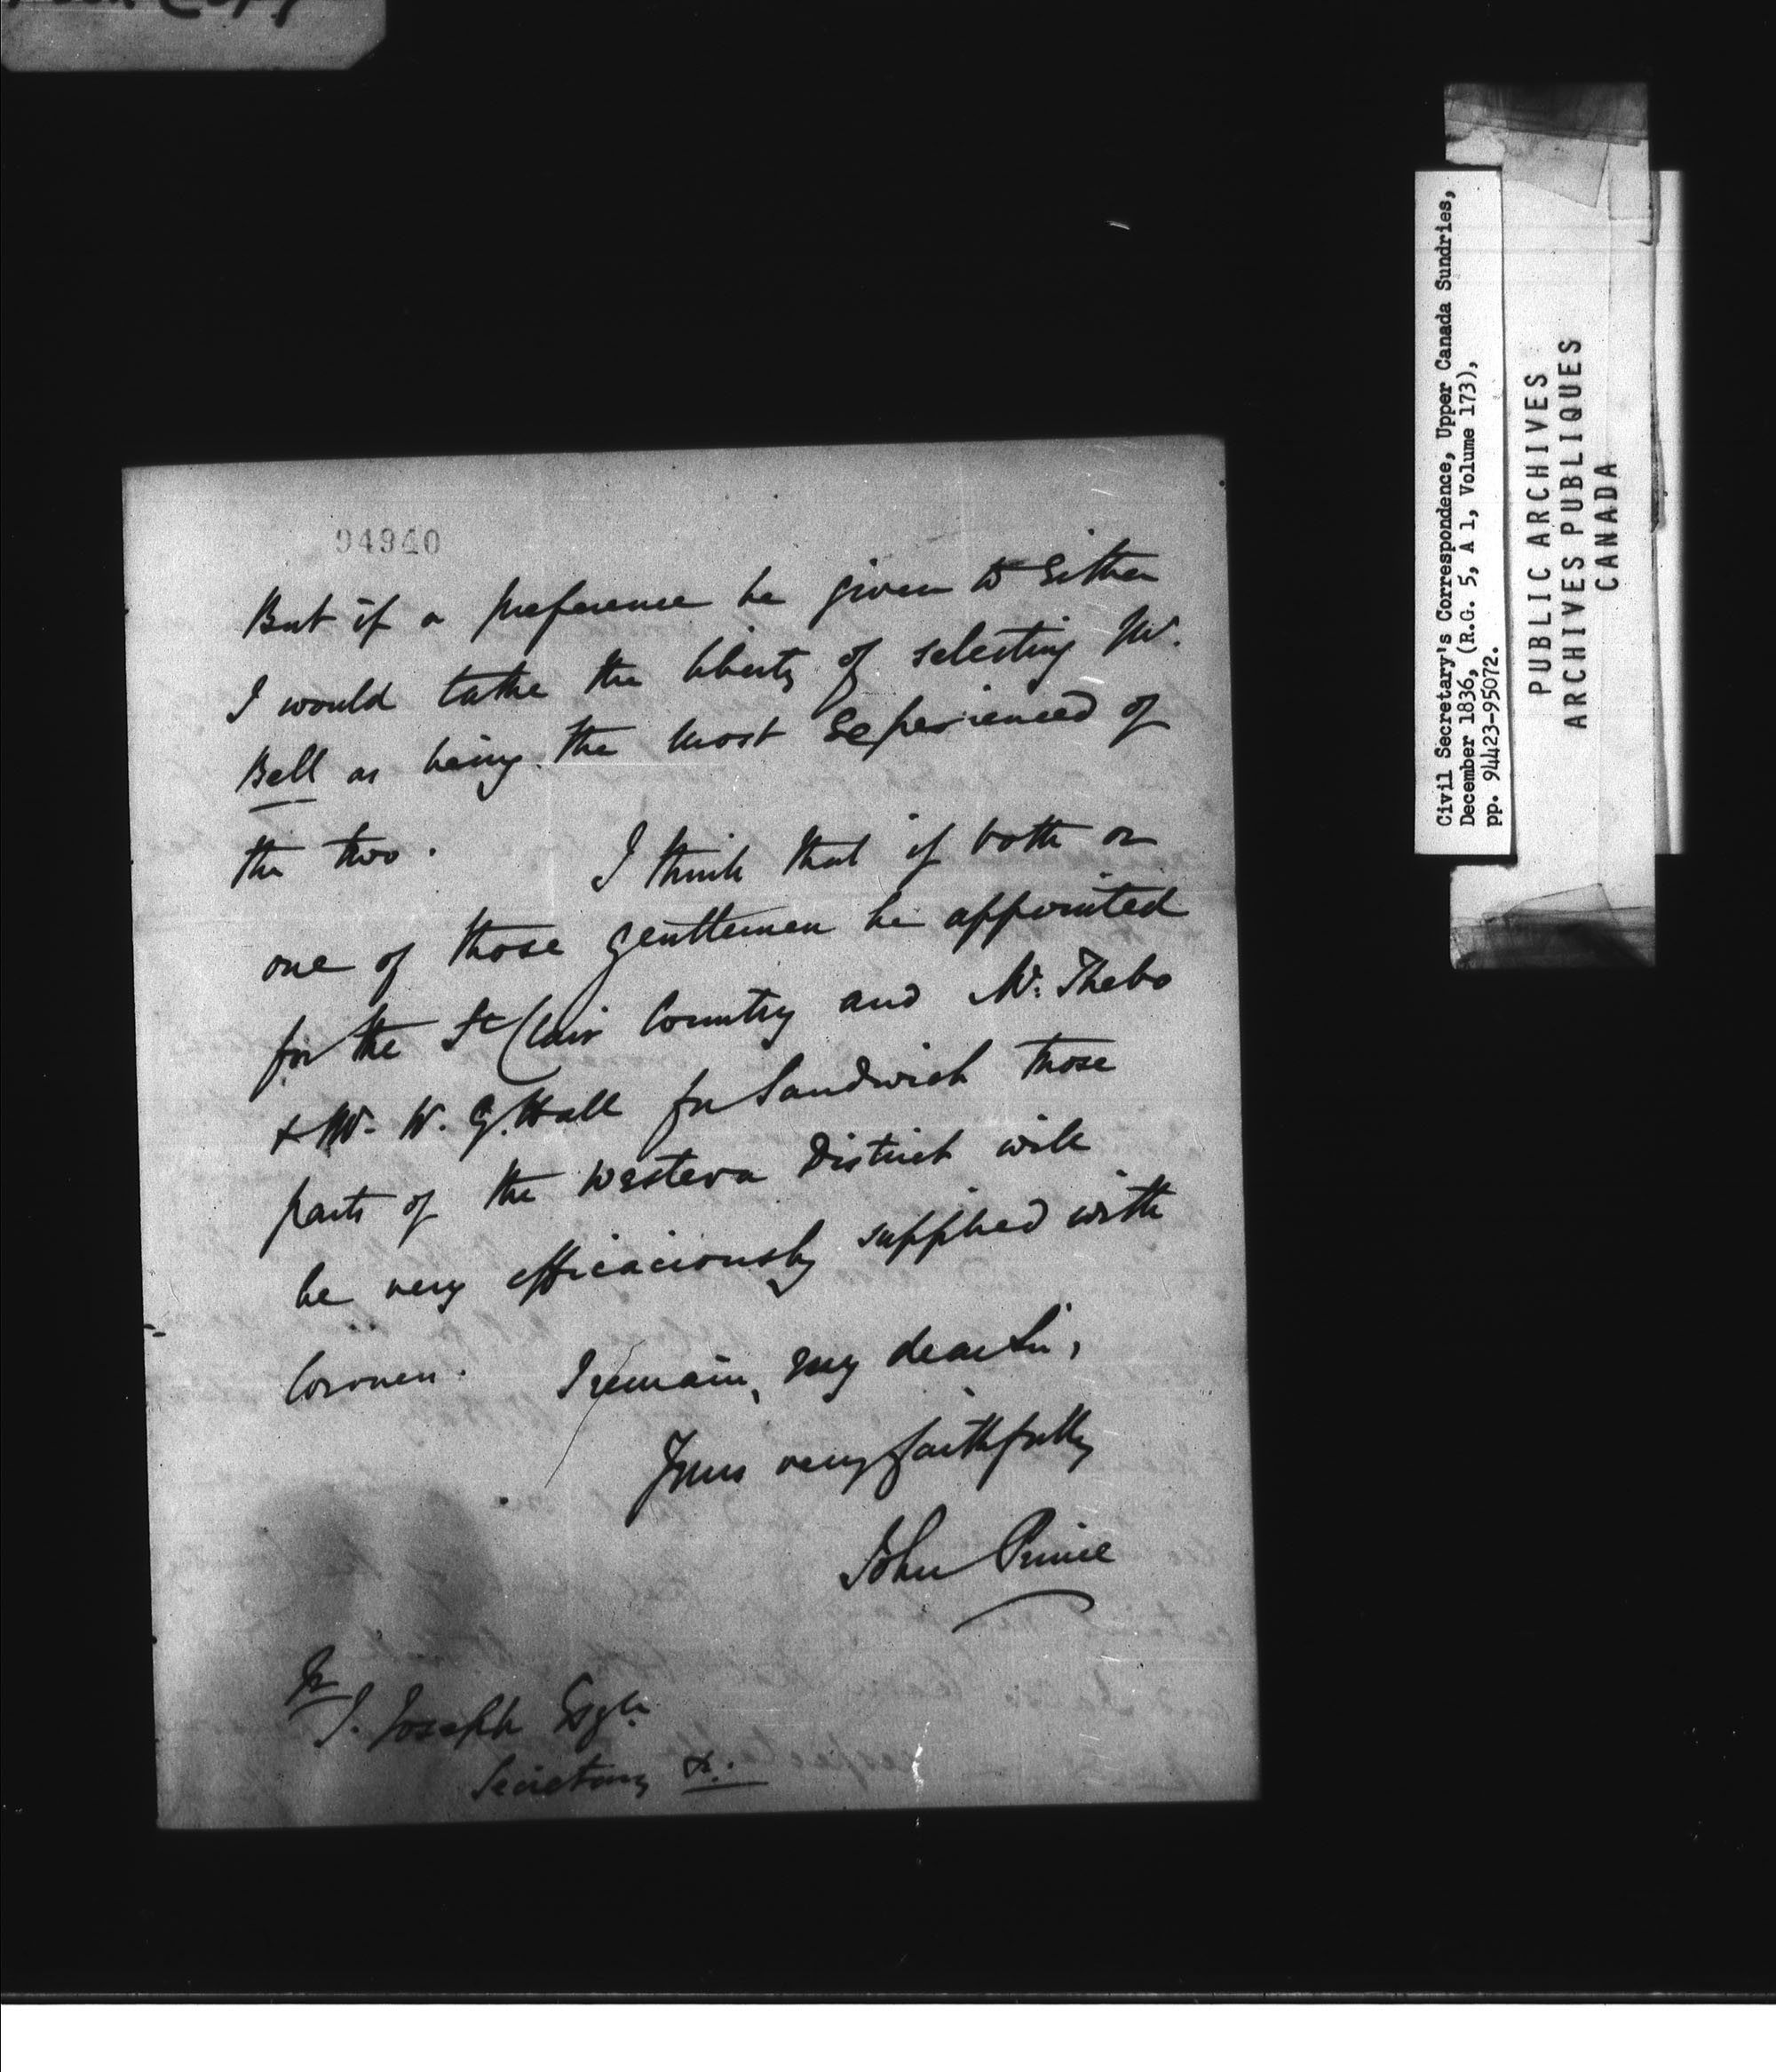 94940
But if a preference be given to Either
I would take the liberty of selecting Mr.
Bell as being the most Experienced of
the two. I think that if both or
one of those gentlemen be appointed
for the St Clair Country and Mr. Thebo
& Mr. W. G. Hall for Sandwich those
parts of the Western District will
be very efficaciously supplied with
Coroners. I remain, my dear Sir,
Yours very faithfully
John Prince
J. Joseph Esqre
Secretary &c.
Civil Secretary's Correspondence, Upper Canada Sundries,
December 1836, (R.G. 5, A 1, Volume 173),
pp. 94423-95072.
PUBLIC ARCHIVES
ARCHIVES PUBLIQUES
CANADA